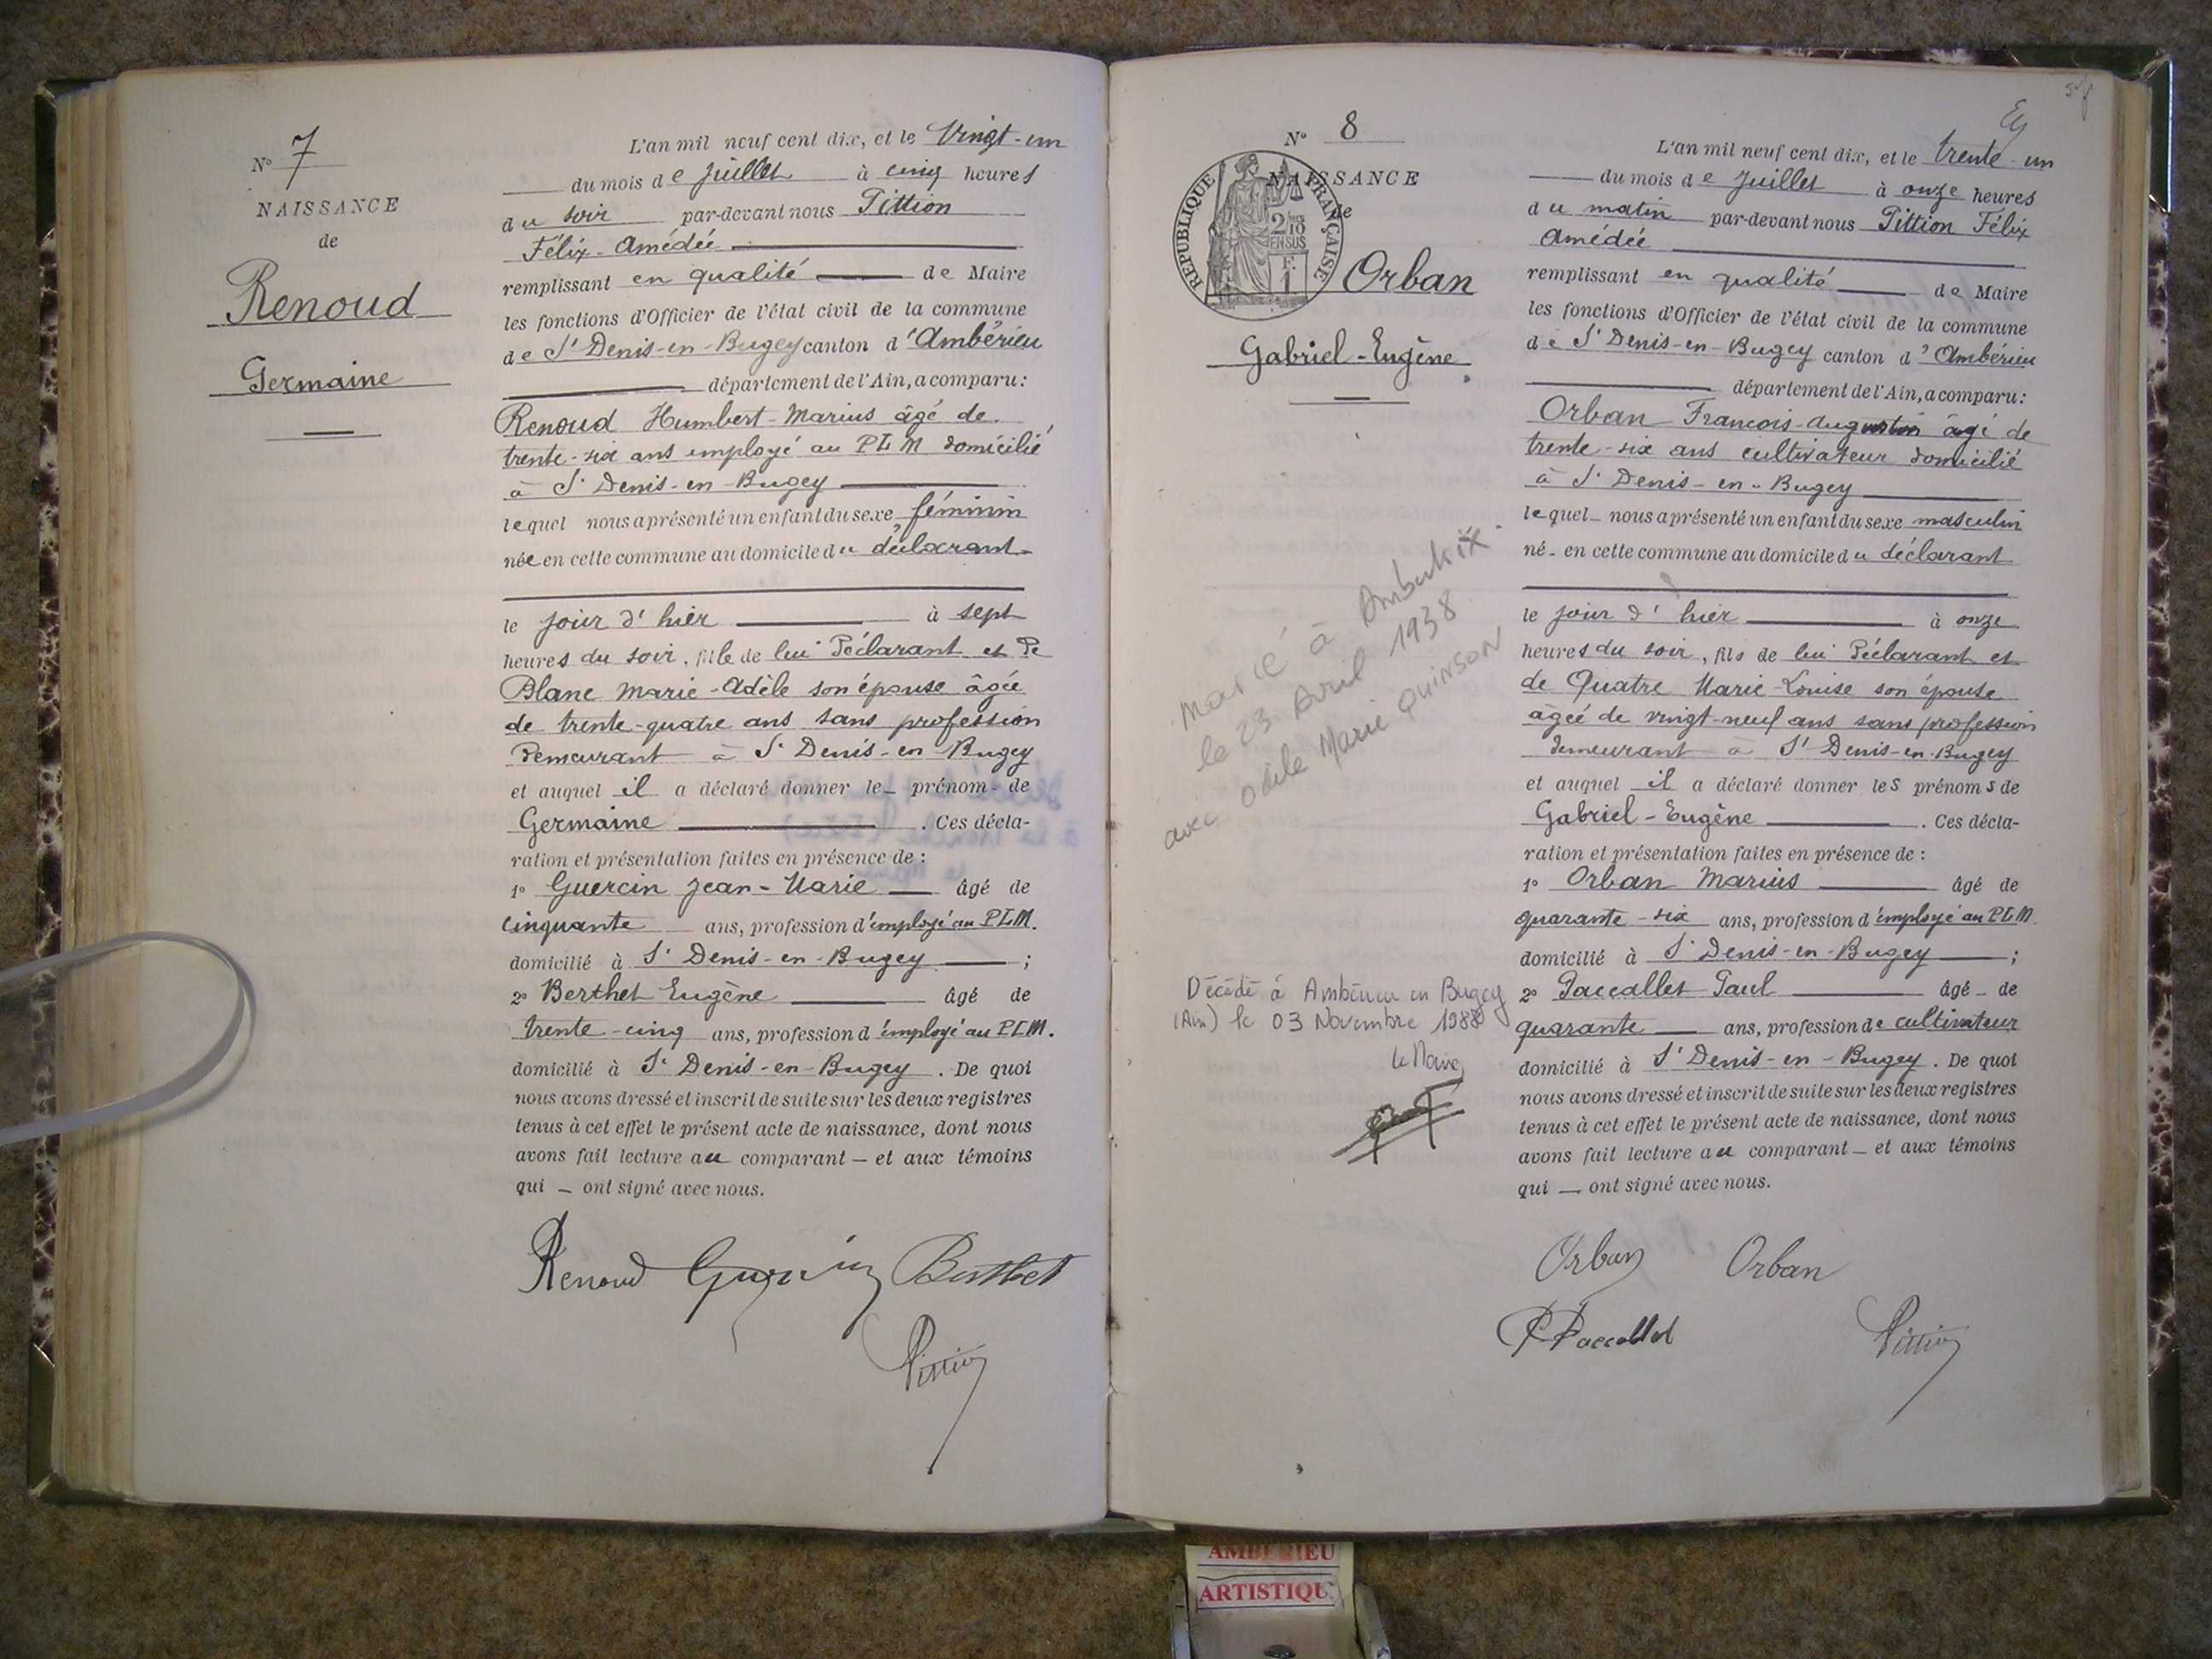 N° 7
NAISSANCE
de
Renoud
Germaine
L'an mil neuf cent dix, et le Vingt-un
du mois de Juillet à cinq heures
du soir par-devant nous Pittion
Félix-Amédée
remplissant en qualité de Maire
les fonctions d'Officier de l'état civil de la commune
de St Denis-en-Bugey canton d'Ambérieu
département de l'Ain, a comparu:
Renoud Humbert-Marius âgé de
trente-six ans employé au PLM domicilié
à St Denis-en-Bugey
lequel nous a présenté un enfant du sexe féminin
née en cette commune au domicile du déclarant
le jour d'hier à sept
heures du soir, fille de lui Déclarant et De
Blanc Marie-Adèle son épouse âgée
de trente-quatre ans sans profession
Demeurant à St Denis-en-Bugey
et auquel il a déclaré donner le prénom de
Germaine . Ces décla-
ration et présentation faites en présence de :
1° Guercin Jean-Marie âgé de
cinquante ans, profession d'employé au PLM.
domicilié à St Denis-en-Bugey ;
2° Berthet Eugène âgé de
trente-cinq ans, profession d'employé au PLM.
domicilié à St Denis-en-Bugey . De quoi
nous avons dressé et inscrit de suite sur les deux registres
tenus à cet effet le présent acte de naissance, dont nous
avons fait lecture au comparant et aux témoins
qui ont signé avec nous.
Renoud Guercin Berthet
Pittion
N° 8
NAISSANCE
de
RÉPUBLIQUE FRANÇAISE
2/10
EN SUS
F.
1
Orban
Gabriel-Eugène
L'an mil neuf cent dix, et le trente-un
du mois de Juillet à onze heures
du matin par-devant nous Pittion Félix
Amédée
remplissant en qualité de Maire
les fonctions d'Officier de l'état civil de la commune
de St Denis-en-Bugey canton d'Ambérieu
département de l'Ain, a comparu:
Orban Francois-Augustin âgé de
trente-six ans cultivateur domicilié
à St Denis-en-Bugey
lequel nous a présenté un enfant du sexe masculin
né en cette commune au domicile du déclarant
le jour d'hier à onze
heures du soir, fils de lui Déclarant et
de Quatre Marie-Louise son épouse
âgée de vingt-neuf ans sans profession
demeurant à St Denis-en-Bugey
et auquel il a déclaré donner les prénoms de
Gabriel-Eugène . Ces décla-
ration et présentation faites en présence de :
1° Orban Marius âgé de
quarante-six ans, profession d'employé au PLM
domicilié à St Denis-en-Bugey ;
2° Paccallet Paul âgé de
quarante ans, profession de cultivateur
domicilié à St Denis-en-Bugey . De quoi
nous avons dressé et inscrit de suite sur les deux registres
tenus à cet effet le présent acte de naissance, dont nous
avons fait lecture au comparant et aux témoins
qui ont signé avec nous.
Orban Orban
P Paccallet Pittion
Marié à Ambutrix
le 23 Avril 1938
avec Odile Marie Quinson
Décédé à Ambérieu en Bugey
(Ain) le 03 Novembre 1988
Le Maire,
AMBERIEU
ARTISTIQUE